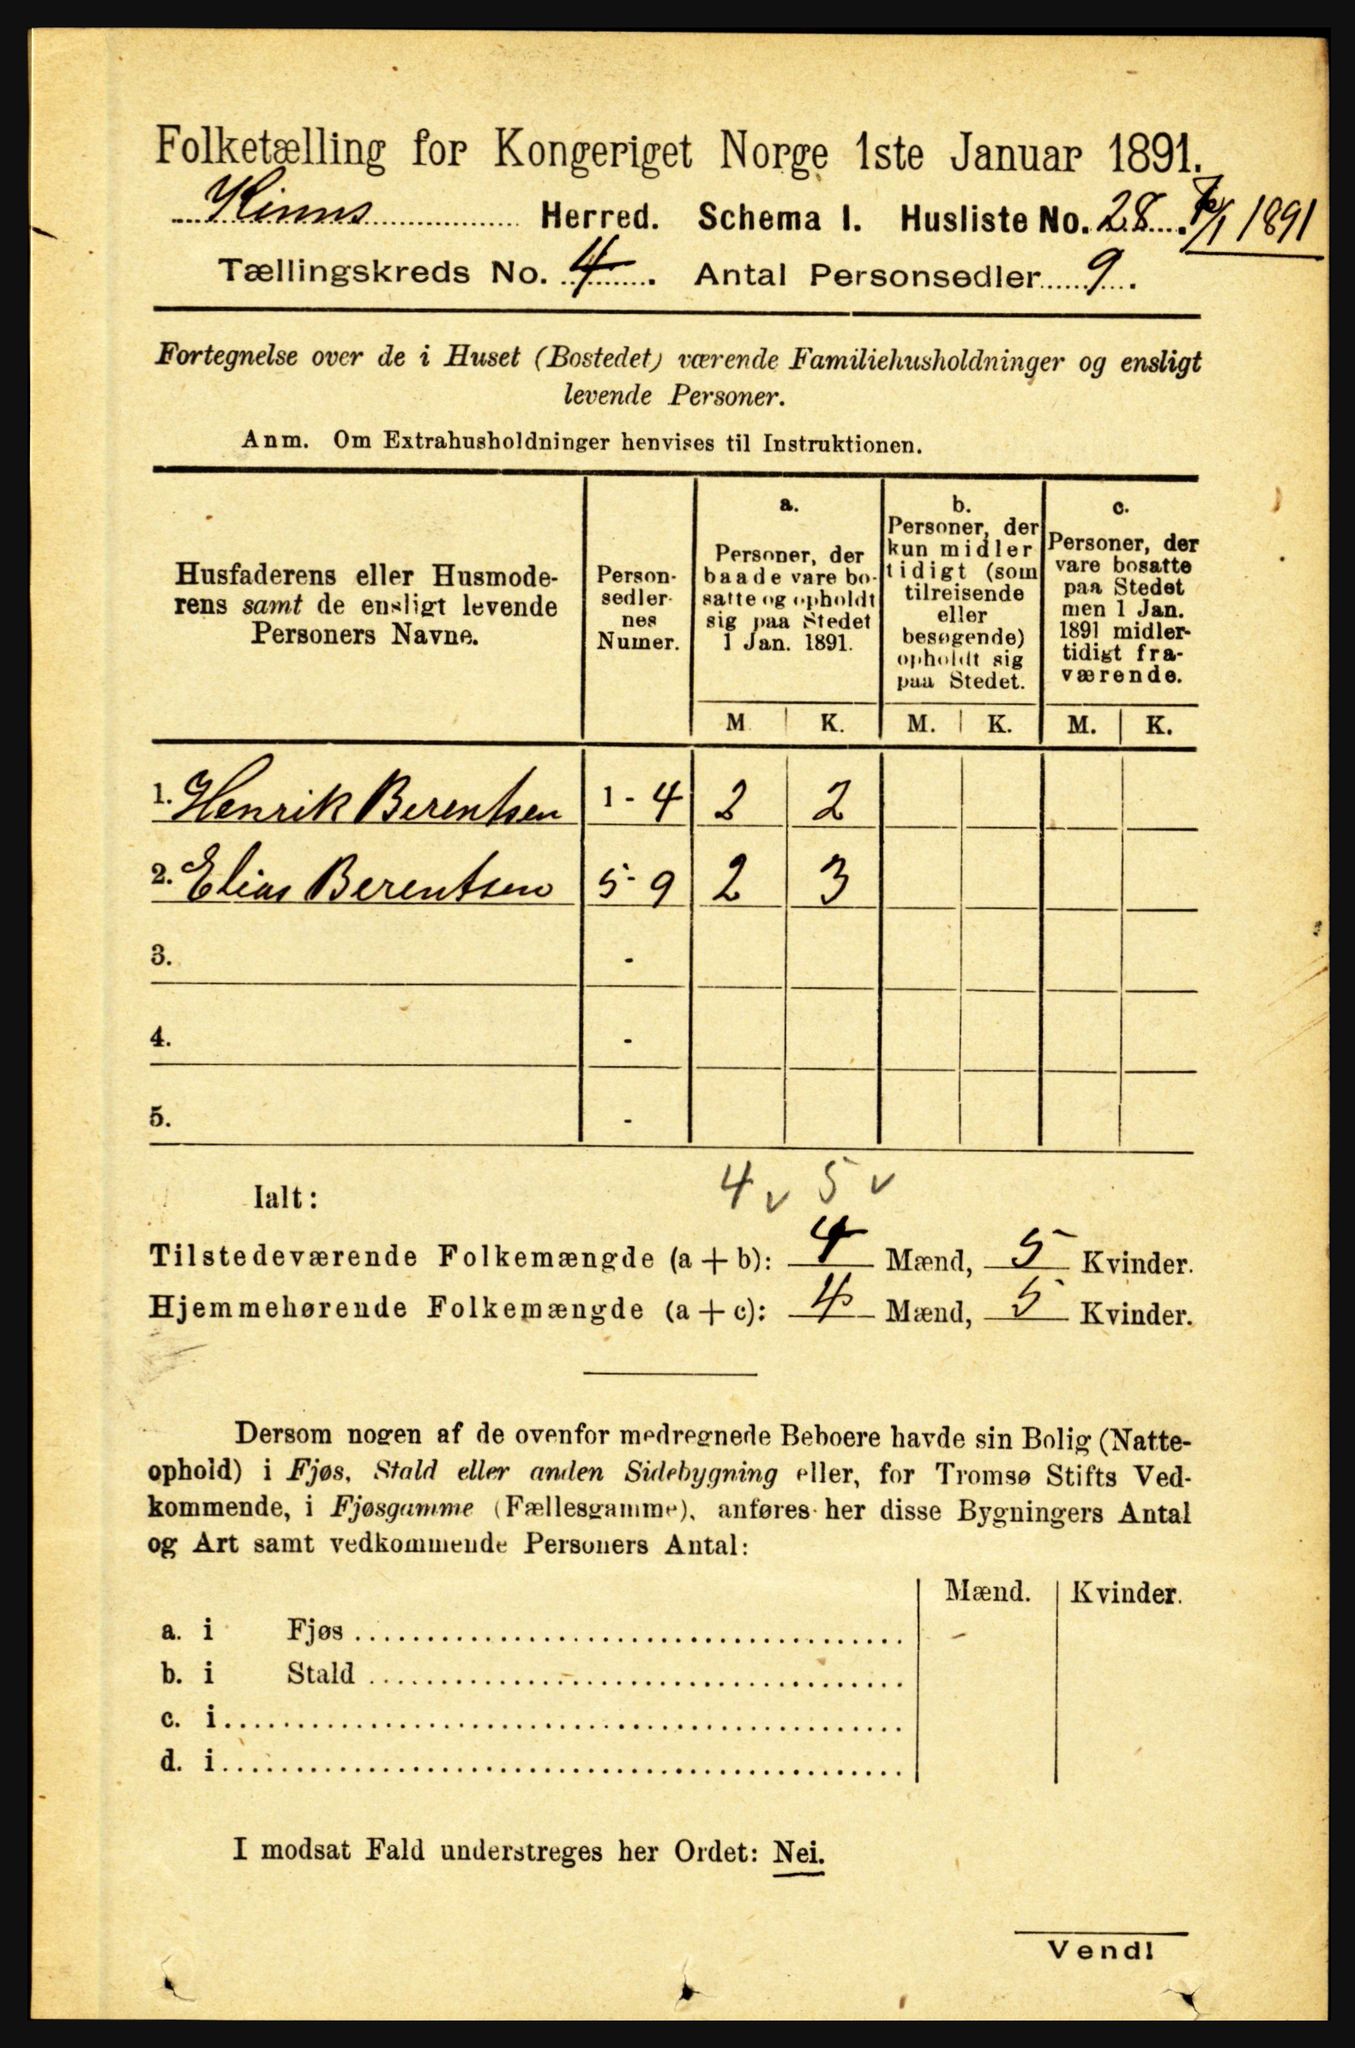 Folketælling for Kongeriget Norge 1ste Januar 1891.
Kinns Herred. Schema I. Husliste No. 28. /1 1891
Tællingskreds No. 4. Antal Personsedler 9.
Fortegnelse over de i Huset (Bostedet) værende Familiehusholdninger og ensligt
levende Personer.
Anm. Om Extrahusholdninger henvises til Instruktionen.
Husfaderens eller Husmode-
rens samt de ensligt levende
Personers Navne.
Person-
sedler-
nes
Numer.
a.
Personer, der
baade vare bo-
satte og opholdt
sig paa Stedet
1 Jan. 1891.
b.
Personer, der
kun midler
tidigt (som
tilreisende
eller
besøgende)
opholdt sig
paa Stedet.
c.
Personer, der
vare bosatte
paa Stedet
men 1 Jan.
1891 midler-
tidigt fra-
værende.
M K. M. K. M. K.
1. Henrik Berentsen 1 - 4 2 2
2. Elias Berentsen 5 - 9 2 3
3. -
4. -
5. -
4 v 5 v
Ialt:
Tilstedeværende Folkemængde (a + b): 4 Mænd, 5 Kvinder.
Hjemmehørende Folkemængde (a + c): 4 Mænd, 5 Kvinder.
Dersom nogen af de ovenfor medregnede Beboere havde sin Bolig (Natte-
ophold) i Fjøs, Stald eller anden Sidebygning eller, for Tromsø Stifts Ved-
kommende, i Fjøsgamme (Fællesgamme), anføres her disse Bygningers Antal
og Art samt vedkommende Personers Antal:
Mænd. Kvinder.
a. i Fjøs
b. i Stald
c. i
d. i
I modsat Fald understreges her Ordet: Nei.
Vend!